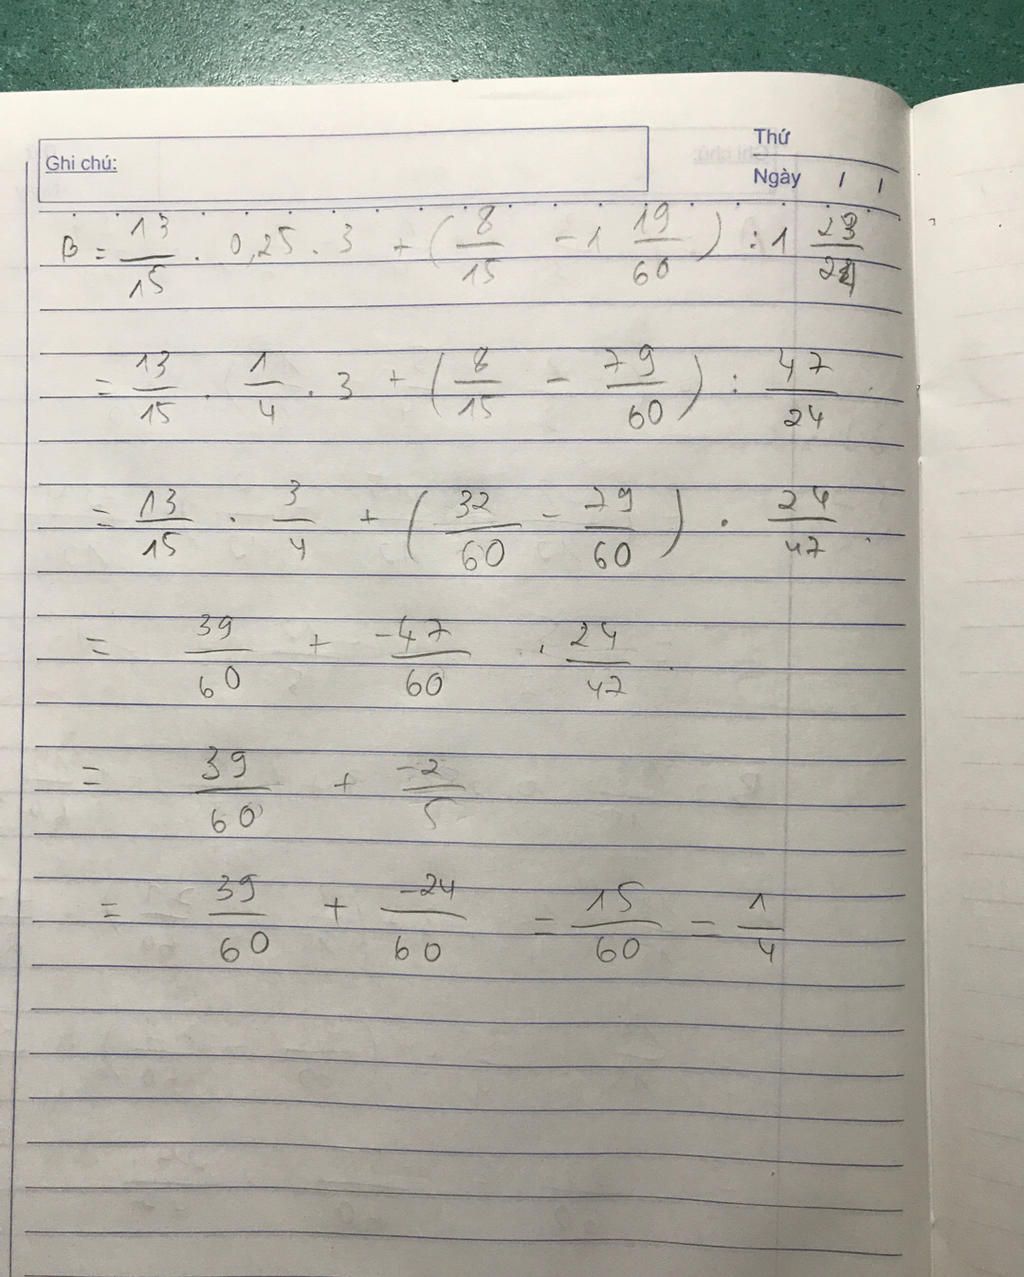 Thứ
Ghi chú:
Ngày / /
B = 13/15 . 0,25 . 3 + ( 8/15 - 1 19/60 ) : 1 23/24
= 13/15 . 1/4 . 3 + ( 8/15 - 79/60 ) : 47/24
= 13/15 . 3/4 + ( 32/60 - 79/60 ) . 24/47
= 39/60 + -47/60 . 24/47
= 39/60 + -2/5
= 39/60 + -24/60 = 15/60 = 1/4